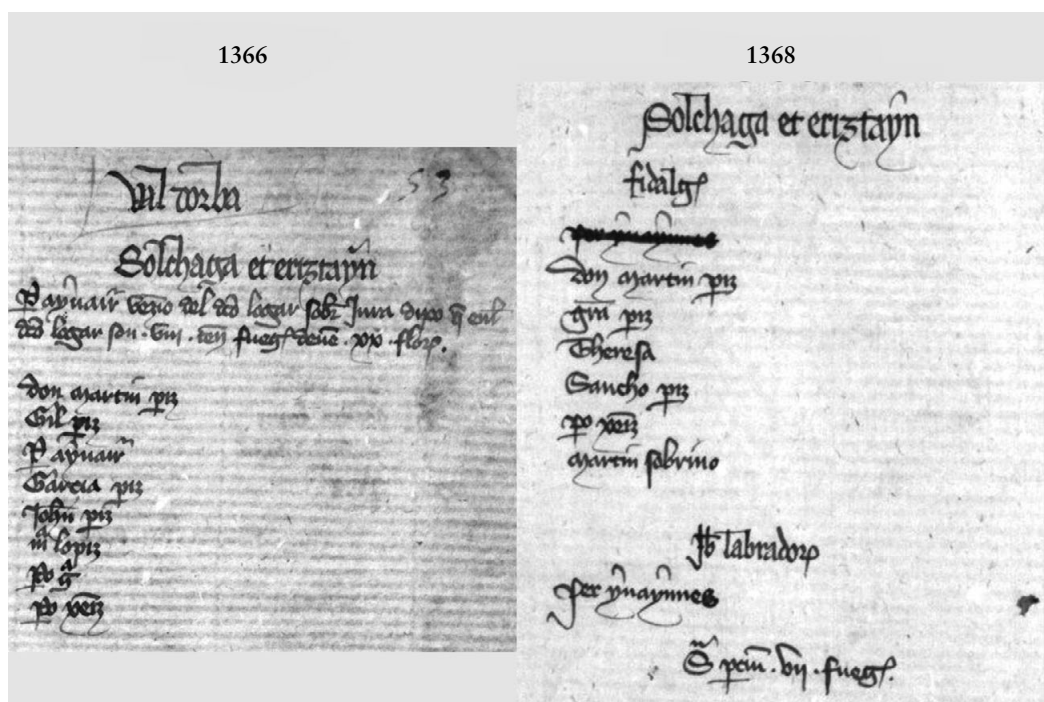 1366
Val dorba
53
Solchaga et eriztayn
P aynair vezino del dcd logar sobr Jura dixo q enl
dcd logar son · viii · fueg deue · xx · flor
don martin piz
Gil piz
P aynair
Garcia piz
Johan piz
m lopiz
Po g
Po xeiz
1368
Solchaga et eriztayn
fidalg
Don martin piz
gra piz
Theresa
Sancho piz
Po xeiz
martin sobrino
labrador
per ynaynnes
S · vii · fueg